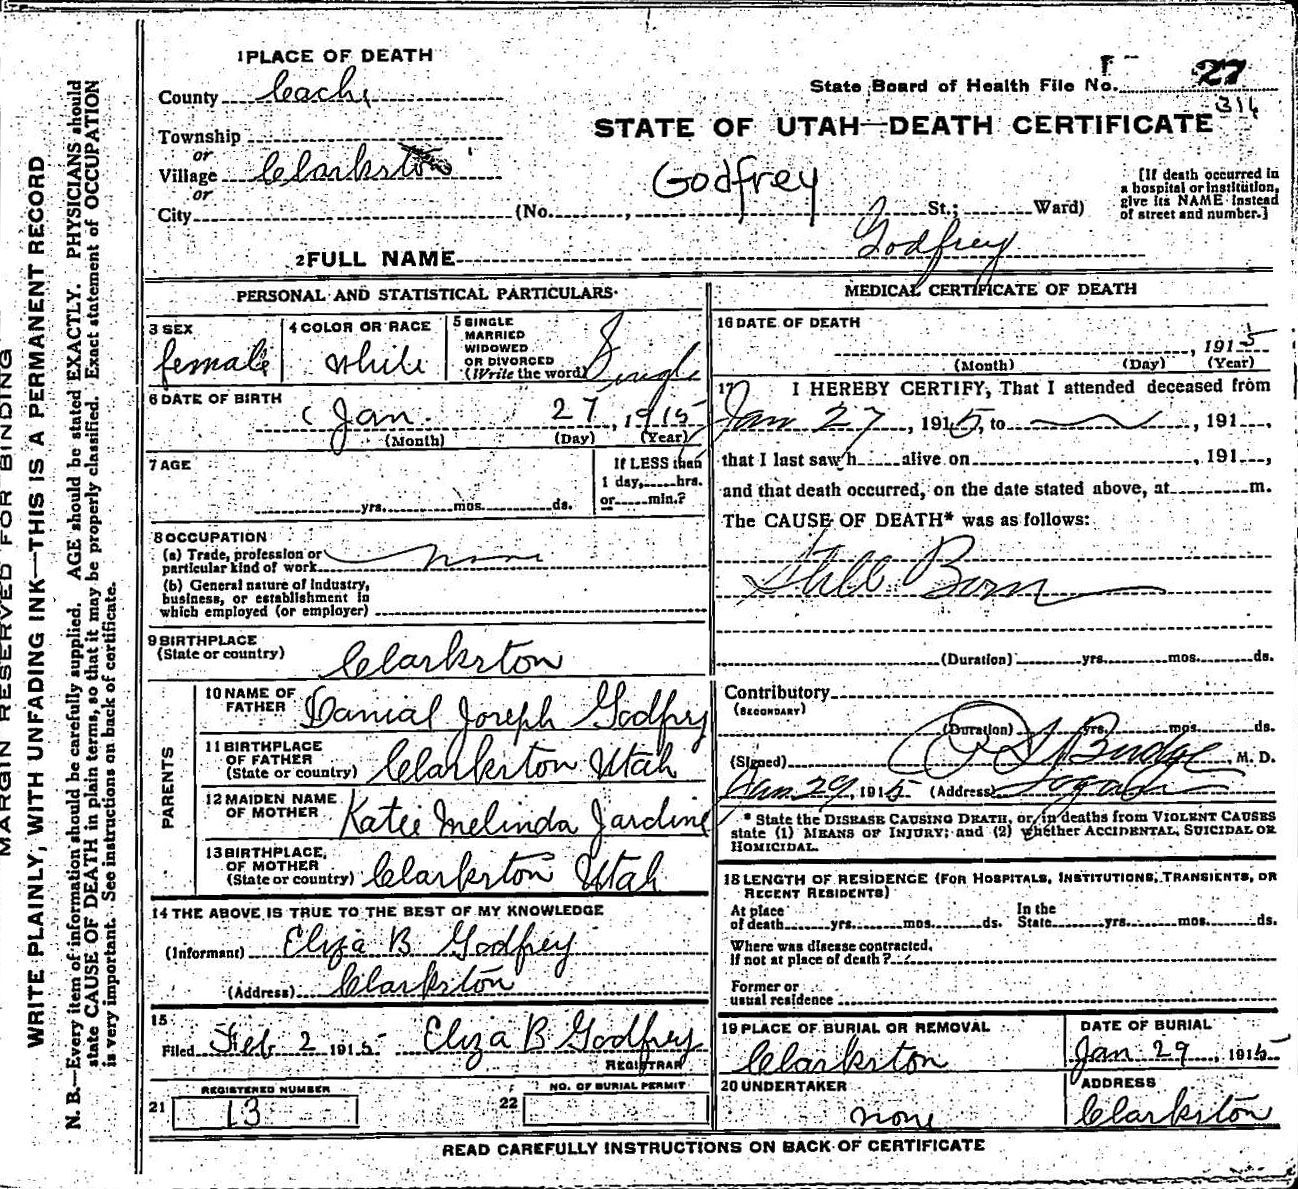 1 PLACE OF DEATH
County Cache
Township
or
Village Clarkston
or
City (No. , St.; Ward)
State Board of Health File No. 27
314
STATE OF UTAH—DEATH CERTIFICATE
Godfrey
[If death occurred in
a hospital or institution,
give its NAME instead
of street and number.]
2 FULL NAME Godfrey
PERSONAL AND STATISTICAL PARTICULARS
3 SEX
female
4 COLOR OR RACE
white
5 SINGLE
MARRIED
WIDOWED
OR DIVORCED
(Write the word)
Single
6 DATE OF BIRTH
Jan. 27, 1915
(Month) (Day) (Year)
7 AGE
yrs. mos. ds.
If LESS than
1 day, hrs.
or min.?
8 OCCUPATION
(a) Trade, profession or
particular kind of work none
(b) General nature of industry,
business, or establishment in
which employed (or employer)
9 BIRTHPLACE
(State or country) Clarkston
PARENTS
10 NAME OF
FATHER Danial Joseph Godfry
11 BIRTHPLACE
OF FATHER
(State or country) Clarkston Utah
12 MAIDEN NAME
OF MOTHER Katie Melinda Jardine
13 BIRTHPLACE,
OF MOTHER
(State or country) Clarkston Utah
14 THE ABOVE IS TRUE TO THE BEST OF MY KNOWLEDGE
(Informant) Eliza B Godfrey
(Address) Clarkston
15
Filed Feb 2 1915 Eliza B Godfrey
REGISTRAR
REGISTERED NUMBER
21 13
NO. OF BURIAL PERMIT
22
MEDICAL CERTIFICATE OF DEATH
16 DATE OF DEATH
, 1915
(Month) (Day) (Year)
17 I HEREBY CERTIFY, That I attended deceased from
Jan 27, 1915, to , 191 ,
that I last saw h alive on , 191 ,
and that death occurred, on the date stated above, at m.
The CAUSE OF DEATH* was as follows:
Still Born
(Duration) yrs. mos. ds.
Contributory
(SECONDARY)
(Duration) yrs. mos. ds.
(Signed) Budge, M. D.
Jan 29, 1915 (Address) Logan
* State the DISEASE CAUSING DEATH, or, in deaths from VIOLENT CAUSES
state (1) MEANS OF INJURY; and (2) whether ACCIDENTAL, SUICIDAL OR
HOMICIDAL.
18 LENGTH OF RESIDENCE (FOR HOSPITALS, INSTITUTIONS, TRANSIENTS, OR
RECENT RESIDENTS)
At place
of death yrs. mos. ds.
In the
State yrs. mos. ds.
Where was disease contracted,
if not at place of death?
Former or
usual residence
19 PLACE OF BURIAL OR REMOVAL
Clarkston
DATE OF BURIAL
Jan 29, 1915
20 UNDERTAKER
none
ADDRESS
Clarkston
READ CAREFULLY INSTRUCTIONS ON BACK OF CERTIFICATE
MARGIN RESERVED FOR BINDING
WRITE PLAINLY, WITH UNFADING INK—THIS IS A PERMANENT RECORD
N. B.—Every item of information should be carefully supplied. AGE should be stated EXACTLY. PHYSICIANS should
state CAUSE OF DEATH in plain terms, so that it may be properly classified. Exact statement of OCCUPATION
is very important. See instructions on back of certificate.